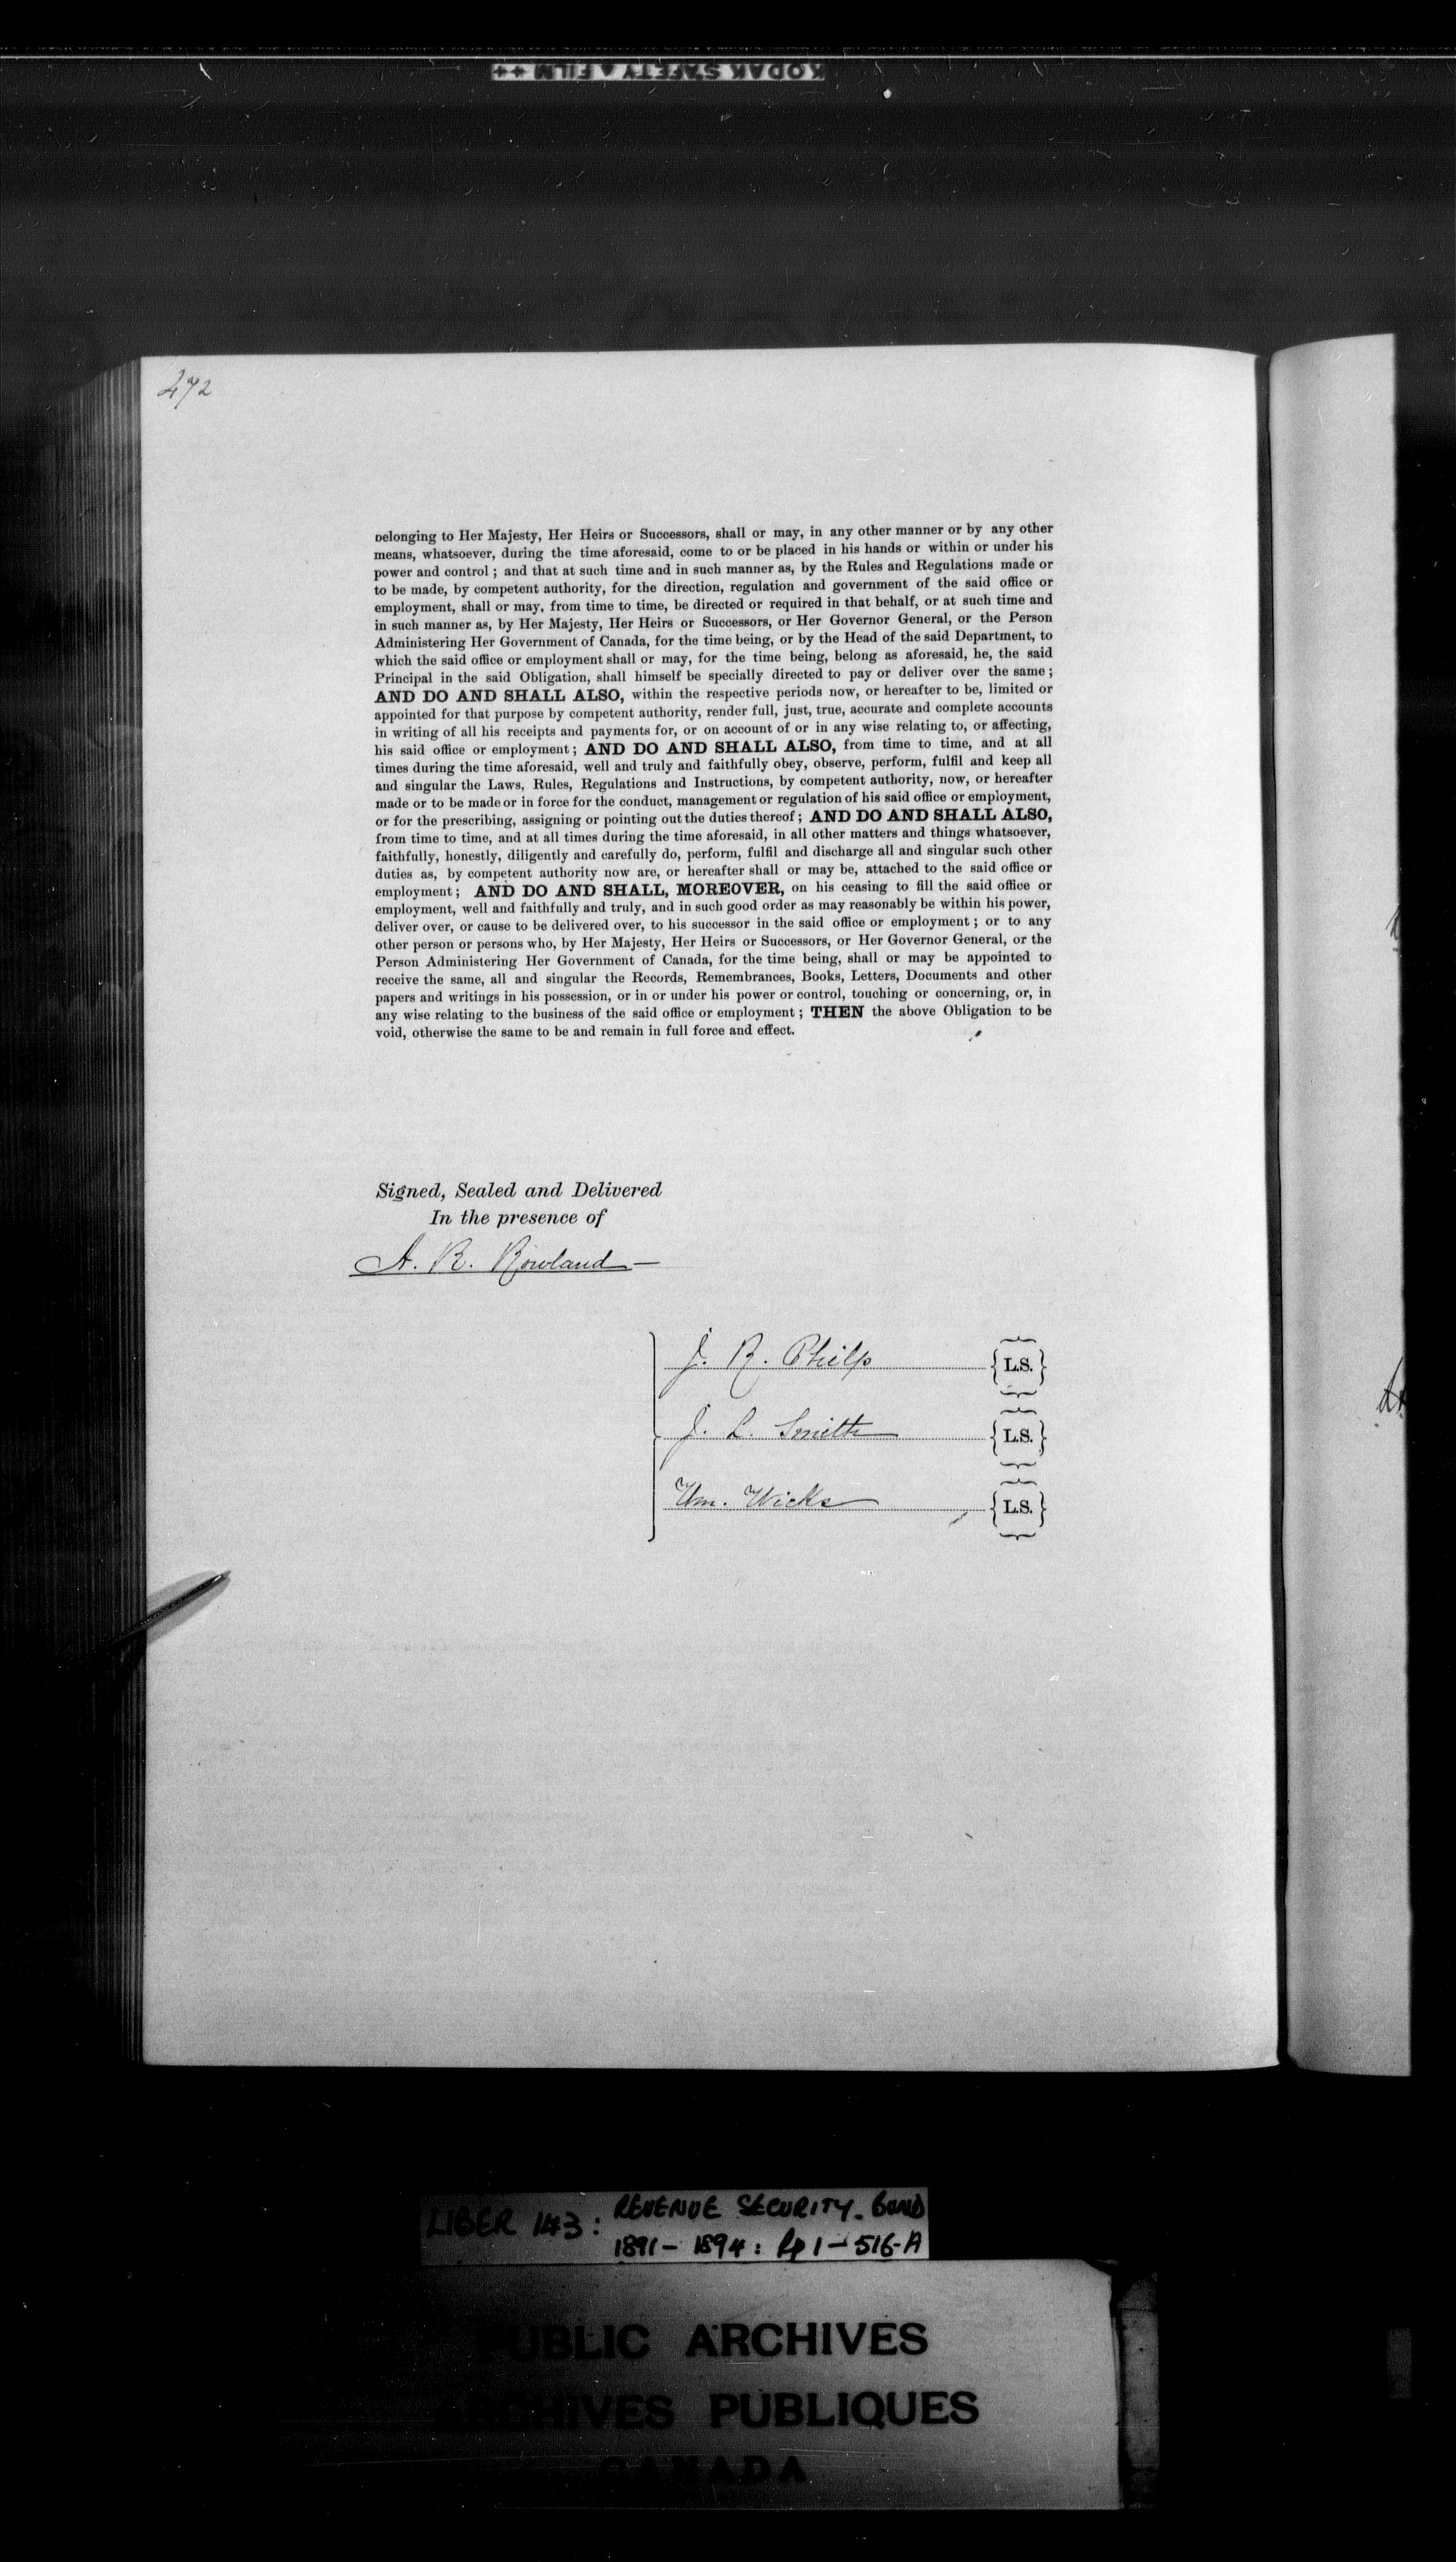 KODAK SAFETY FILM ++
472
belonging to Her Majesty, Her Heirs or Successors, shall or may, in any other manner or by any other
means, whatsoever, during the time aforesaid, come to or be placed in his hands or within or under his
power and control ; and that at such time and in such manner as, by the Rules and Regulations made or
to be made, by competent authority, for the direction, regulation and government of the said office or
employment, shall or may, from time to time, be directed or required in that behalf, or at such time and
in such manner as, by Her Majesty, Her Heirs or Successors, or Her Governor General, or the Person
Administering Her Government of Canada, for the time being, or by the Head of the said Department, to
which the said office or employment shall or may, for the time being, belong as aforesaid, he, the said
Principal in the said Obligation, shall himself be specially directed to pay or deliver over the same ;
AND DO AND SHALL ALSO, within the respective periods now, or hereafter to be, limited or
appointed for that purpose by competent authority, render full, just, true, accurate and complete accounts
in writing of all his receipts and payments for, or on account of or in any wise relating to, or affecting,
his said office or employment ; AND DO AND SHALL ALSO, from time to time, and at all
times during the time aforesaid, well and truly and faithfully obey, observe, perform, fulfil and keep all
and singular the Laws, Rules, Regulations and Instructions, by competent authority, now, or hereafter
made or to be made or in force for the conduct, management or regulation of his said office or employment,
or for the prescribing, assigning or pointing out the duties thereof ; AND DO AND SHALL ALSO,
from time to time, and at all times during the time aforesaid, in all other matters and things whatsoever,
faithfully, honestly, diligently and carefully do, perform, fulfil and discharge all and singular such other
duties as, by competent authority now are, or hereafter shall or may be, attached to the said office or
employment ; AND DO AND SHALL, MOREOVER, on his ceasing to fill the said office or
employment, well and faithfully and truly, and in such good order as may reasonably be within his power,
deliver over, or cause to be delivered over, to his successor in the said office or employment ; or to any
other person or persons who, by Her Majesty, Her Heirs or Successors, or Her Governor General, or the
Person Administering Her Government of Canada, for the time being, shall or may be appointed to
receive the same, all and singular the Records, Remembrances, Books, Letters, Documents and other
papers and writings in his possession, or in or under his power or control, touching or concerning, or, in
any wise relating to the business of the said office or employment ; THEN the above Obligation to be
void, otherwise the same to be and remain in full force and effect.
Signed, Sealed and Delivered
In the presence of
A. R. Rowland
J. R. Philp {L.S.}
J. L. Smith {L.S.}
Wm. Wicks {L.S.}
LIBER 143: REVENUE SECURITY. Bond
1891 - 1894: Pp 1 - 516-A
PUBLIC ARCHIVES
ARCHIVES PUBLIQUES
CANADA